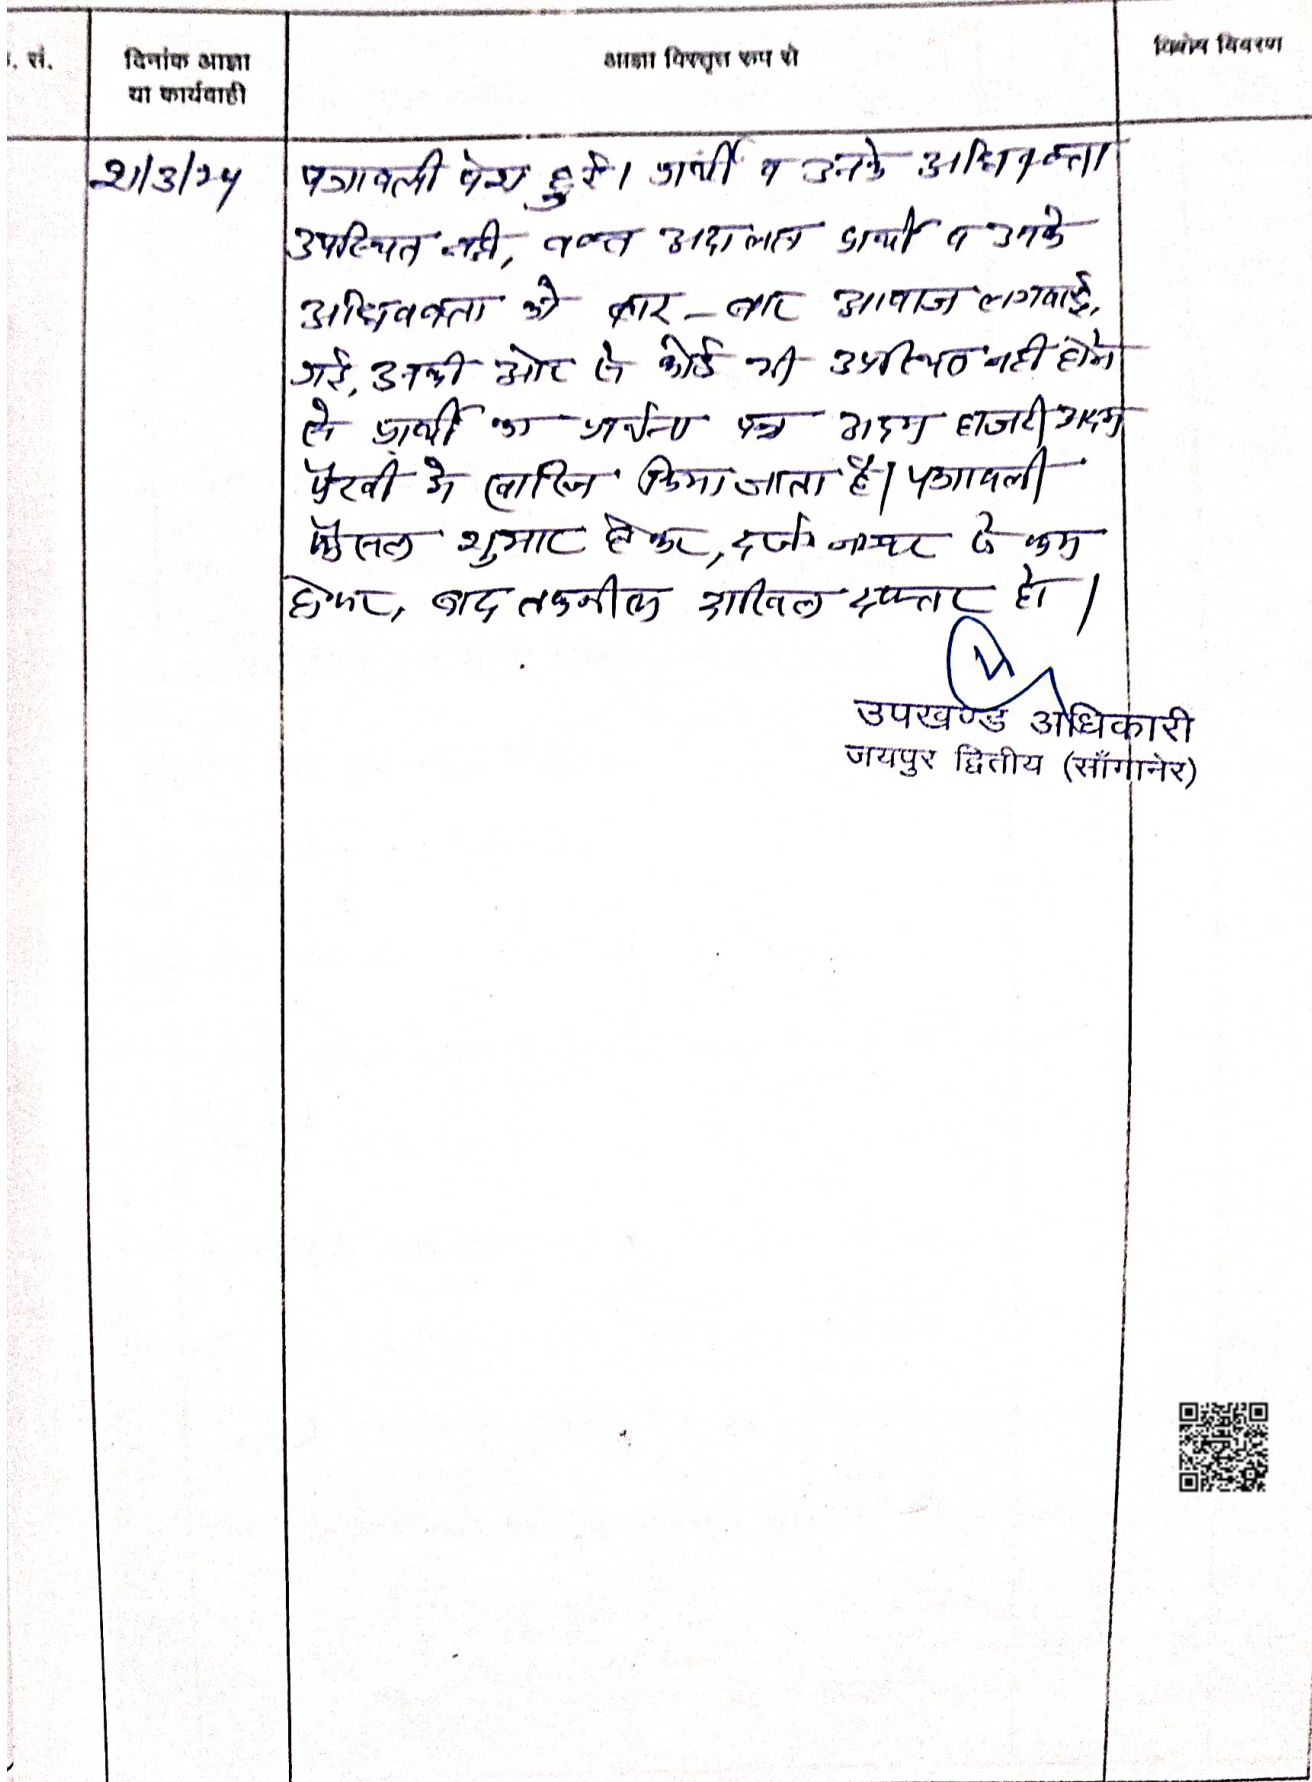 . सं.
दिनांक आज्ञा
या कार्यवाही
आज्ञा विस्तृत रूप से
विशेष विवरण
21/3/24
पत्रावली पेश हुई। प्रार्थी व उनके अधिवक्ता
उपस्थित नही, वक्त अदालत प्रार्थी व उनके
अधिवक्ता को बार-बार आवाज लगवाई,
गई, उनकी ओर से कोई भी उपस्थित नही होने
से प्रार्थी का प्रार्थना पत्र अदम हाजरी अदम
पैरवी मे खारिज किया जाता है। पत्रावली
फैसल शुमार होकर, दर्ज नम्बर से कम
होकर, बाद तकमील दाखिल दफ्तर हो।
उपखण्ड अधिकारी
जयपुर द्वितीय (साँगानेर)